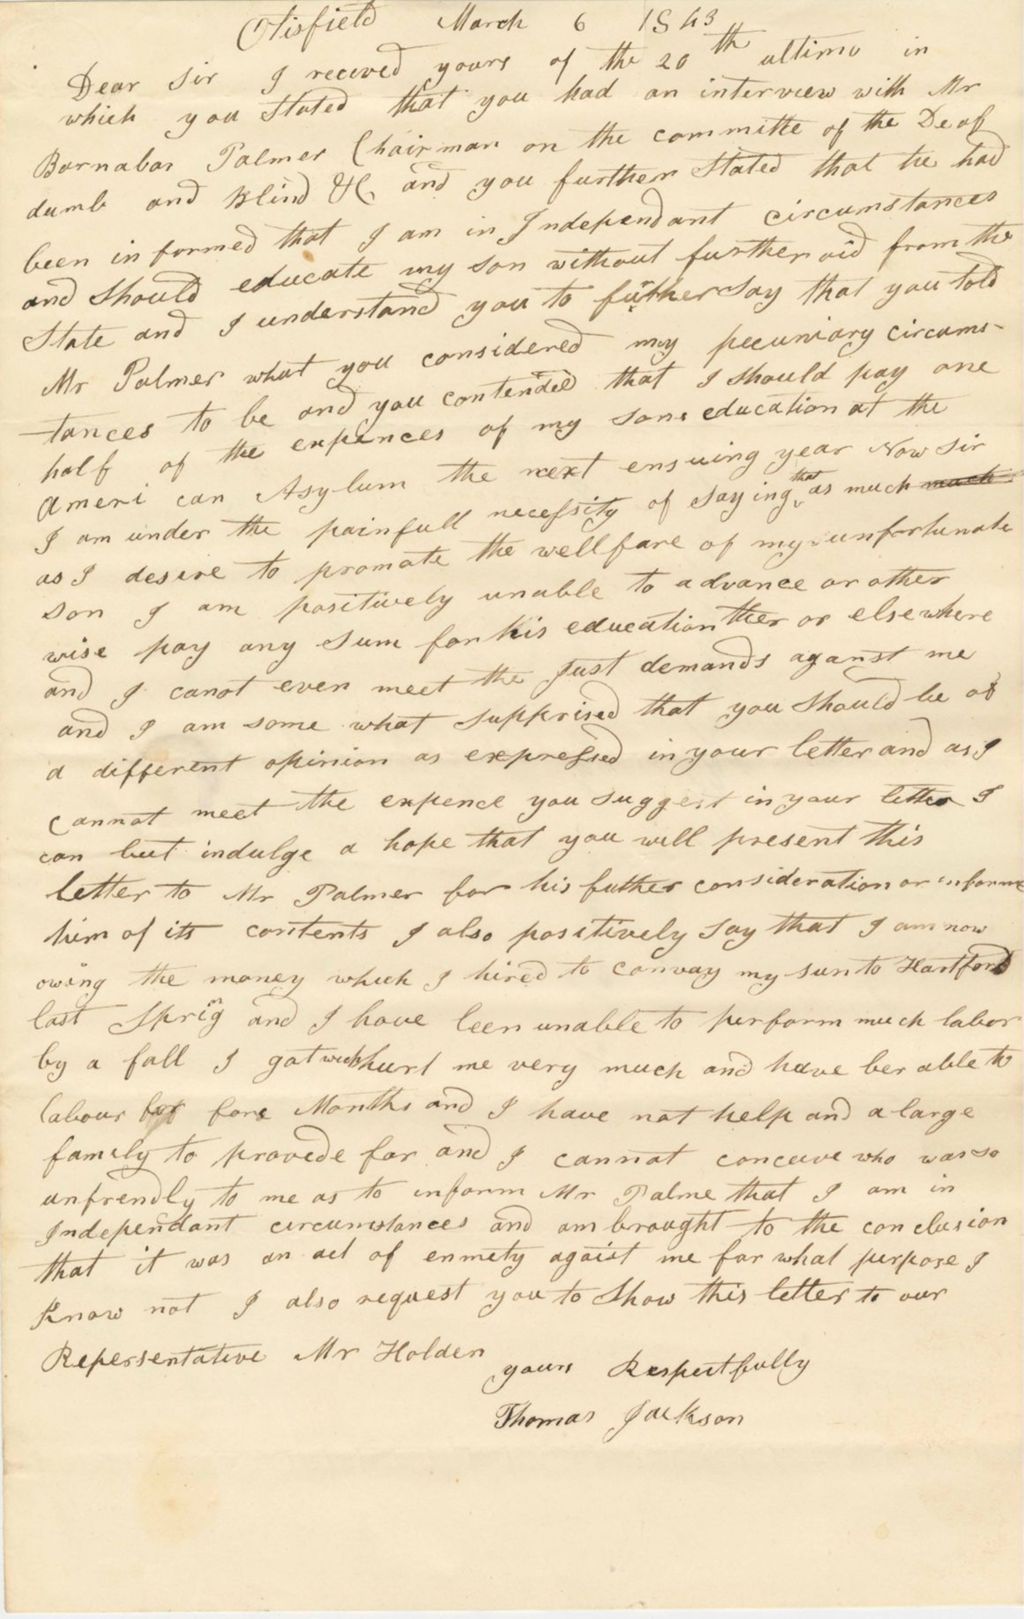 Otisfield March 6 1843
Dear Sir I receved yours of the 20th ultimo in
which you Stated that you had an interview with Mr
Barnabas Palmer Chairman on the committe of the Deaf
dumb and Blind &C and you further Stated that he had
been informed that I am in Independant circumstances
and Should educate my son without further aid from the
State and I understand you to futher Say that you told
Mr Palmer what you considered my pecuniary circums-
tances to be and you contended that I Should pay one
half of the expences of my sons education at the
Ameri can Asylum the next ensuing year Now Sir
I am under the painfull necessity of Saying that as much much
as I desire to promote the wellfare of my unfortunate
son I am positively unable to advance or other
wise pay any sum for his education ther or elsewhere
and I canot even meet the Just demands aganst me
and I am some what Suppriséd that you Should be of
a different opinion as expressed in your letter and as I
cannot meet the expence you suggest in your letter I
can but indulge a hope that you will present this
letter to Mr Palmer for his futher consideration or informe
him of its contents I also positively Say that I am now
owing the money which I hired to convay my sun to Hartford
last Spring and I have been unable to perform much labor
by a fall I got wich hurt me very much and have ber able to
labour but fore Months and I have not help and a large
family to provede for and I cannot conceve who was so
unfrendly to me as to inform Mr Palme that I am in
Independant circumstances and am brought to the conclusion
that it was an act of enmety agaist me for what purpose I
Know not I also request you to Show this letter to our
Repersentative Mr Holden
yours Respectfully
Thomas Jackson